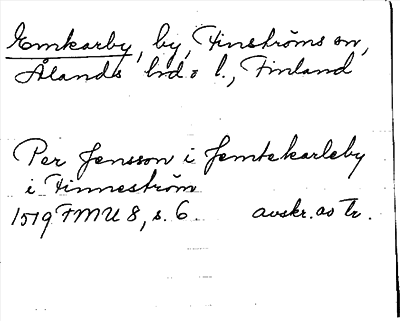 Emkarby, by, Finströms sn,
Ålands hd o l., Finland
Per Jensson i Jemtekarleby
i Finneström
1519 FMU 8, s. 6. avskr. av Tr.